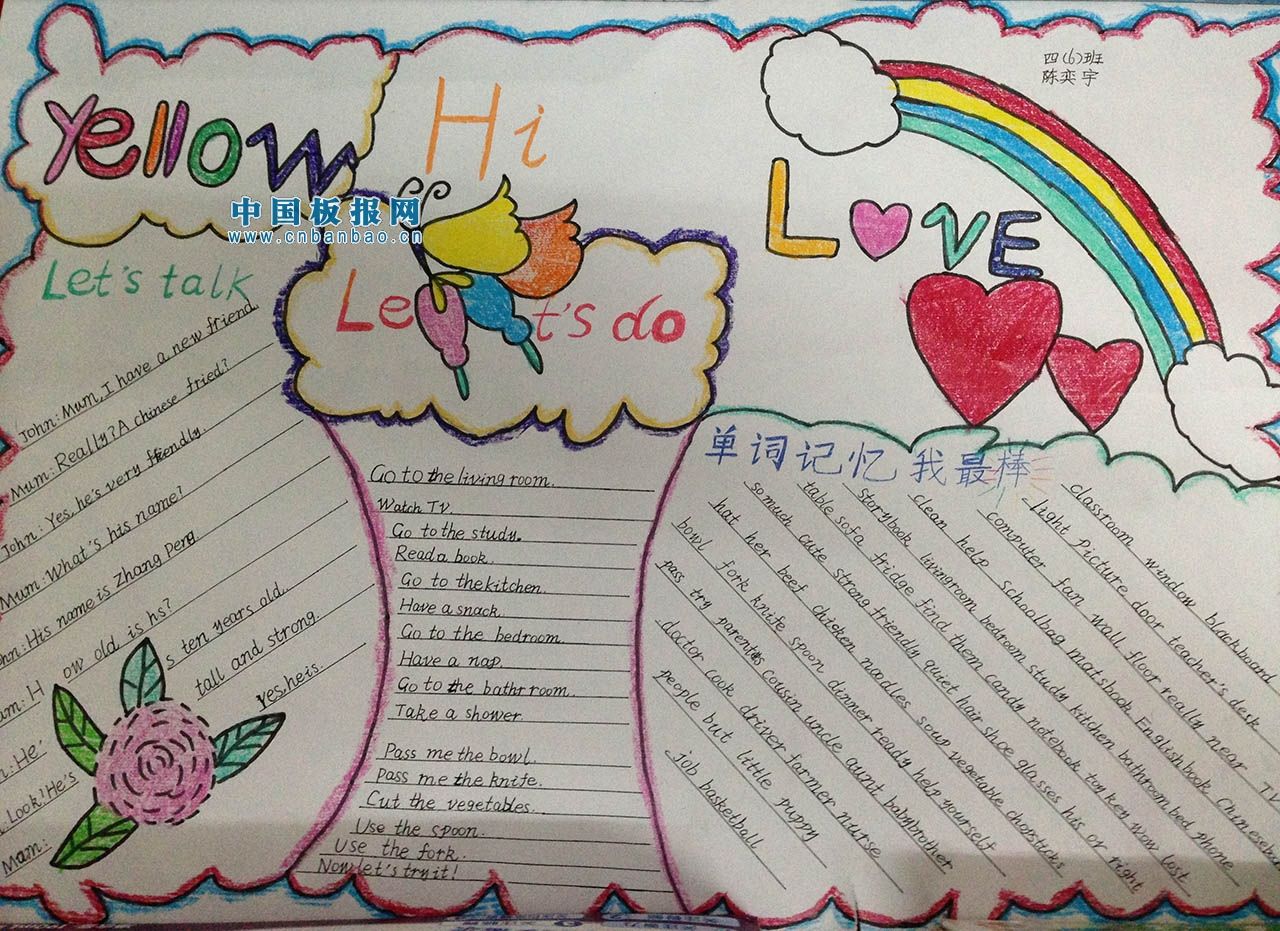 Yellow
Hi
四(6)班
陈奕宇
LOVE
中国板报网
www.cnbanbao.cn
Let's talk
John: Mum, I have a new friend.
Mum: Really? A chinese fried?
John: Yes, he's very friendly.
Mum: What's his name?
John: His name is Zhang Peng.
Mum: How old is hs?
He's ten years old.
Look! He's tall and strong.
Mam: Yes, he is.
Let's do
Go to the living room.
Watch TV.
Go to the study.
Read a book.
Go to the kitchen.
Have a snack.
Go to the bedroom.
Have a nap.
Go to the bathroom.
Take a shower.
Pass me the bowl.
Pass me the knife.
Cut the vegetables.
Use the spoon.
Use the fork.
Now let's try it!
单词记忆 我最棒
classroom window blackboard
light Picture door teacher's desk
computer fan wall floor really near TV
clean help schoolbag matsbook Englishbook Chinesebook
storybook livingroom bedroom study kitchen bathroom bed phone
table sofa fridge find them candy notebook toy key wow lost
so much cute strong friendly quiet hair shoe glasses his or right
hat her beef chicken noodles soup vegetable chopsticks
bowl fork knife spoon dinner ready help yourself
pass try parents cousin uncle aunt babybrother
doctor cook driver farmer nurse
people but little puppy
job basketball